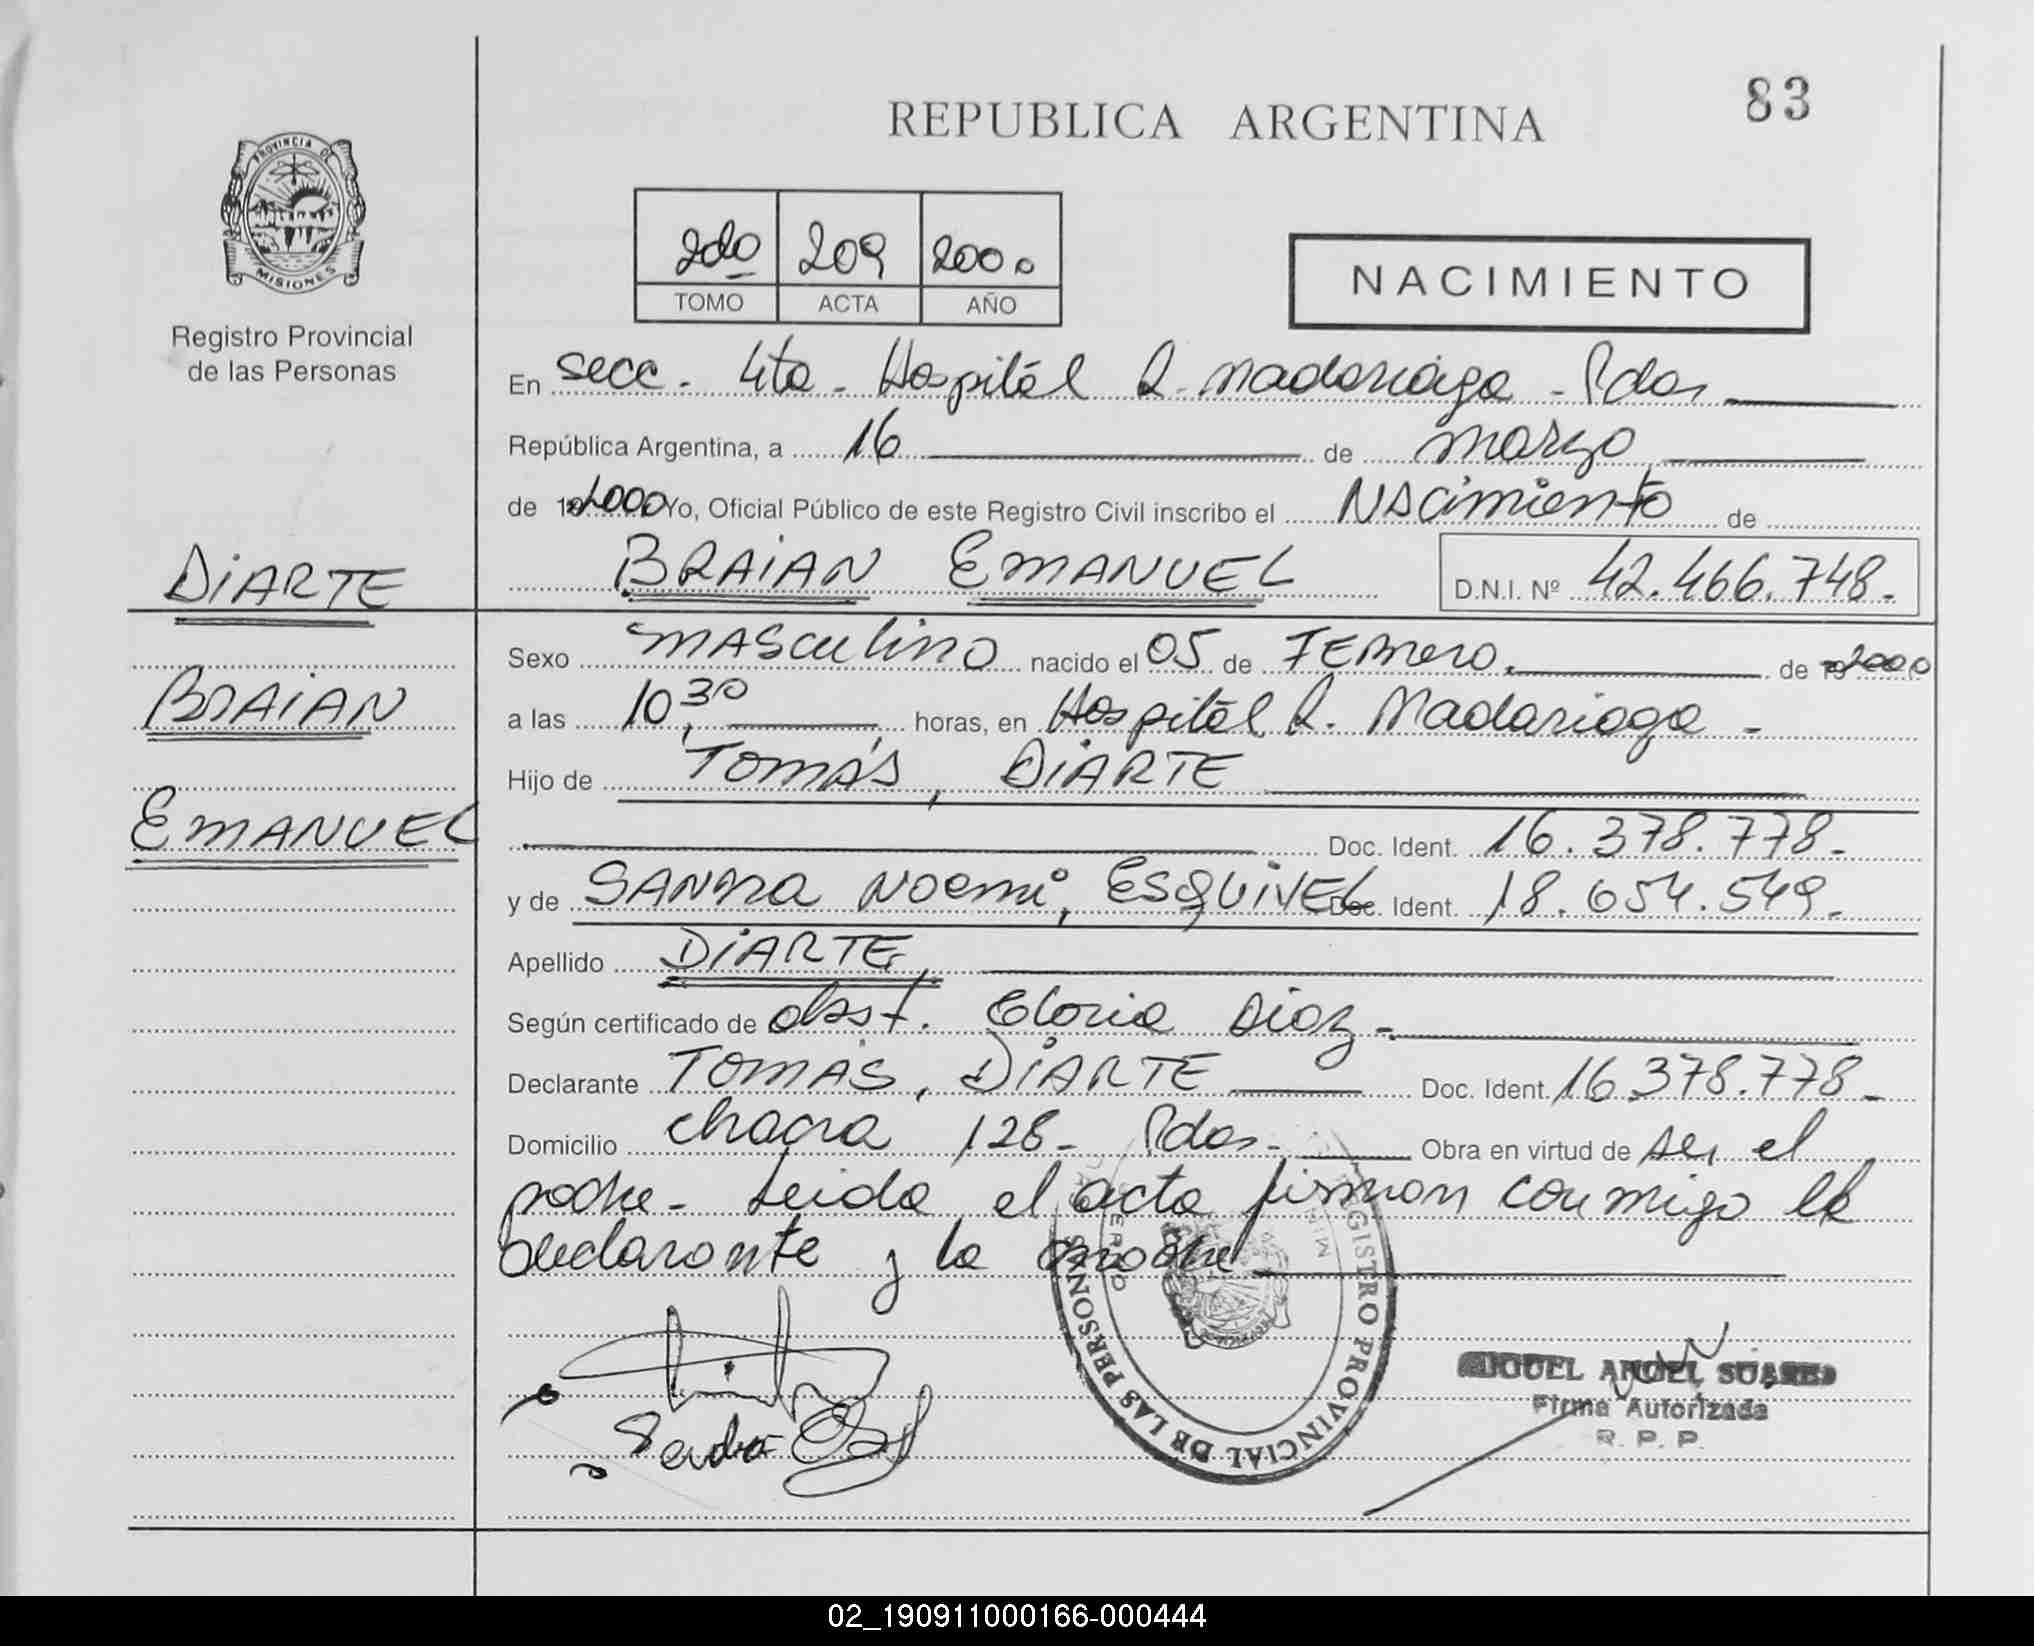 83
REPUBLICA ARGENTINA
PROVINCIA DE
MISIONES
Registro Provincial
de las Personas
2do 209 2000
TOMO ACTA AÑO
NACIMIENTO
En Secc. 4ta - Hospital R. Madariaga - Pdas
República Argentina, a 16 de marzo
de 2000 Yo, Oficial Público de este Registro Civil inscribo el Nacimiento de
BRAIAN EMANUEL D.N.I. Nº 42.466.748.-
DIARTE
BRAIAN
EMANUEL
Sexo MASCULINO nacido el 05 de FEBRERO. de 2000
a las 10,30 horas, en Hospital R. Madariaga -
Hijo de TOMÁS, DIARTE
Doc. Ident. 16.378.778.-
y de SANDRA NOEMI, ESQUIVEL Doc. Ident. 18.654.549.-
Apellido DIARTE,
Según certificado de obst. Gloria Diaz -
Declarante TOMAS, DIARTE Doc. Ident. 16.378.778.-
Domicilio chacra 128 - Pdas - Obra en virtud de ser el
padre - Leida el acta firman conmigo el
declarante y la madre
REGISTRO PROVINCIAL DE LAS PERSONAS
Sandra
MIGUEL ANGEL SUAREZ
Firma Autorizada
R. P. P.
02_190911000166-000444